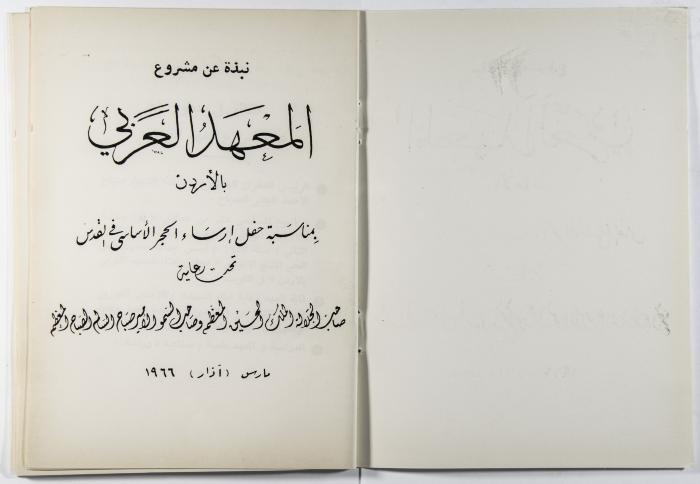 نبذة عن مشروع
المعهد العربي
بالأردن
بمناسبة حفل إرساء الحجر الأساسي في القدس
تحت رعاية
صاحب الجلالة الملك الحسين المعظم وصاحب السمو الأمير صباح السالم الصباح المعظم
مارس (آذار) ١٩٦٦